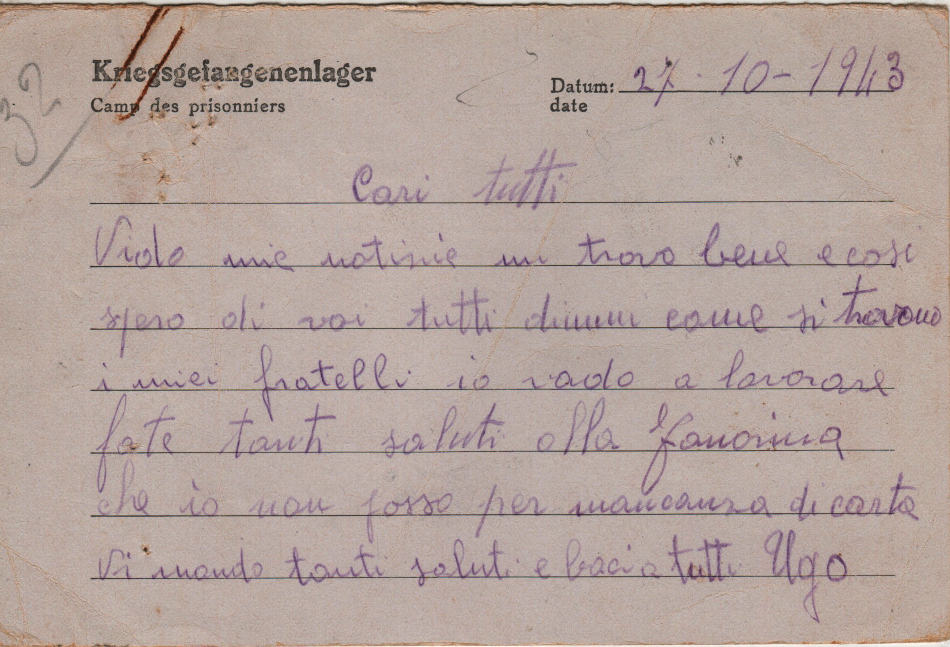 32
Kriegsgefangenenlager
Camp des prisonniers
Datum: 27-10-1943
date
Cari tutti
Vido mie notisie mi trovo bene e cosi
spero di voi tutti dimmi come si trovono
i miei fratelli io vado a lavorare
fate tanti saluti alla
che io non posso per mancanza di carta
Vi mando tanti saluti e baci a tutti Ugo